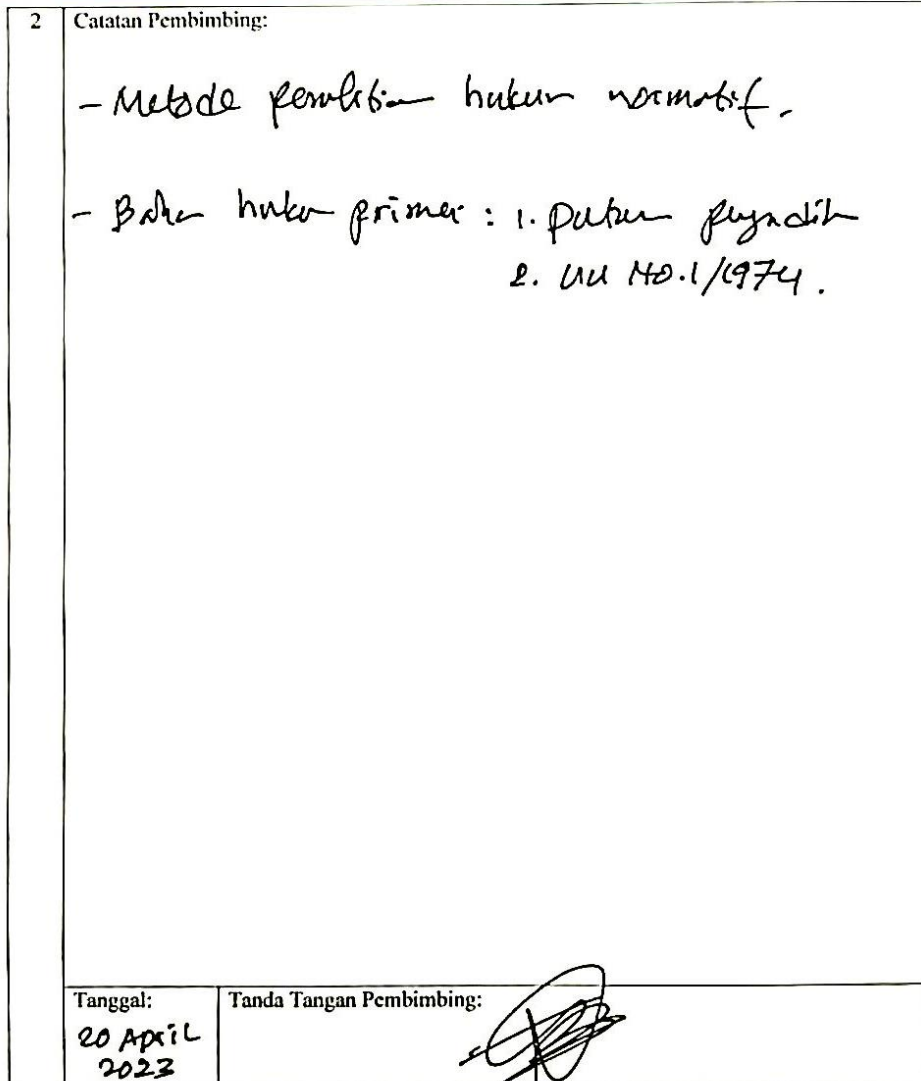 2 Catatan Pembimbing:
- Metode penelitian hukum normatif.
- Bahan hukum primer : 1. Putusan pengadilan
2. UU NO.1/1974.
Tanggal: Tanda Tangan Pembimbing:
20 April
2023